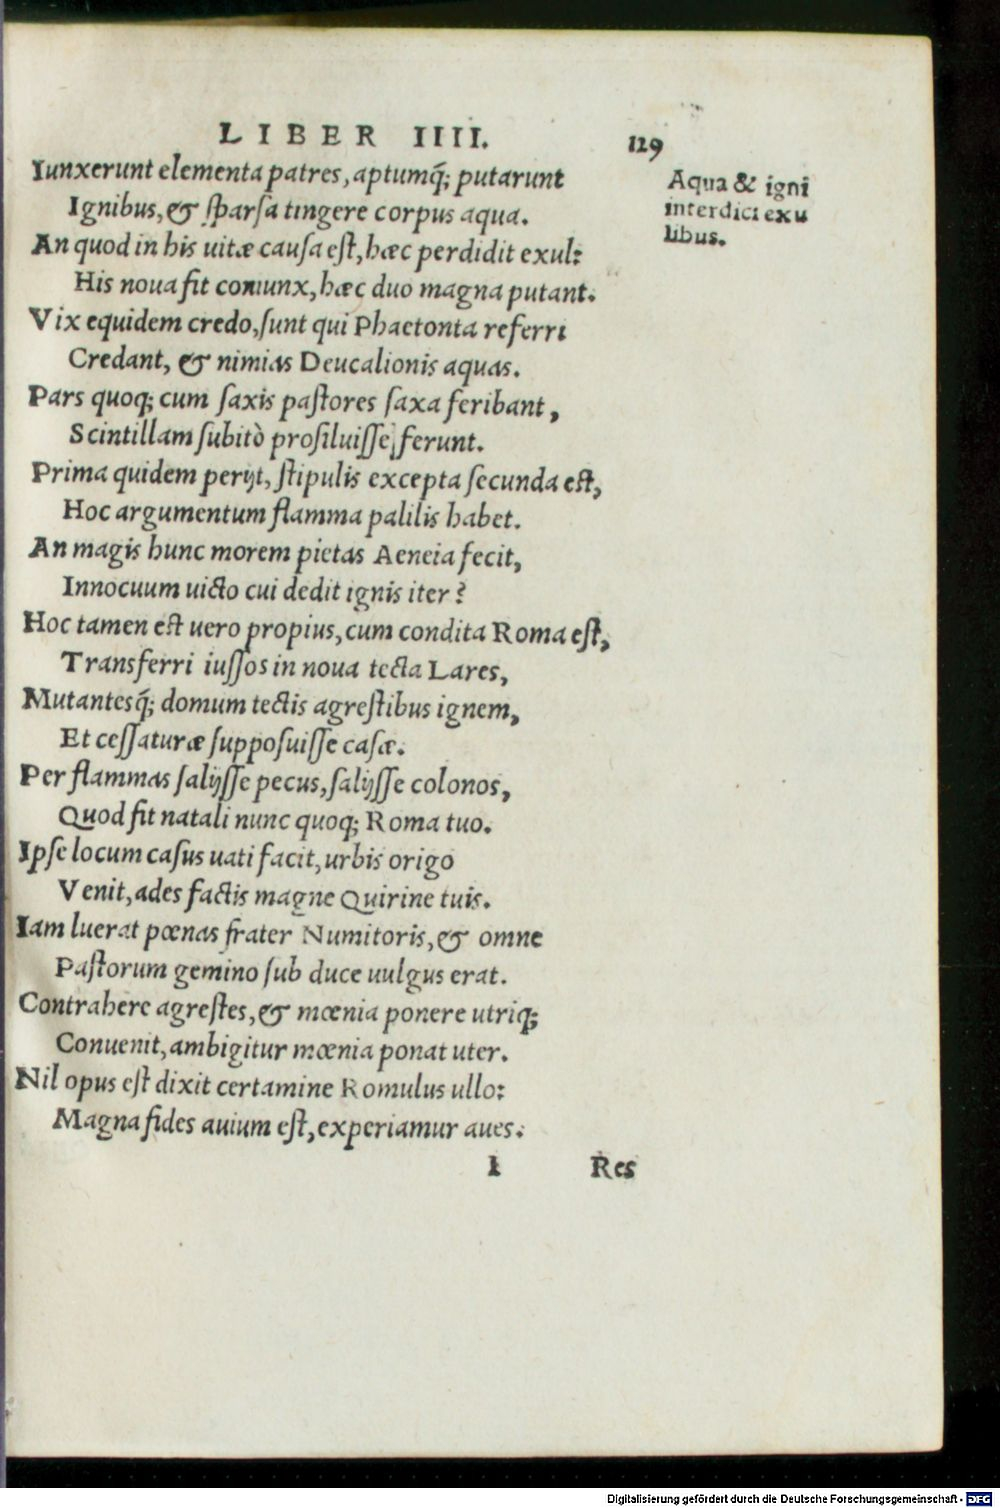 LIBER IIII. 129
Iunxerunt elementa patres, aptumq́; putarunt
Ignibus, & ſparſa tingere corpus aqua.
An quod in his uitæ cauſa eſt, hæc perdidit exul:
His noua fit coniunx, hæc duo magna putant.
Vix equidem credo, ſunt qui Phaetonta referri
Credant, & nimias Deucalionis aquas.
Pars quoq; cum ſaxis paſtores ſaxa feribant,
Scintillam ſubitò proſiluiſſe ferunt.
Prima quidem perijt, ſtipulis excepta ſecunda eſt,
Hoc argumentum flamma palilis habet.
An magis hunc morem pietas Aeneia fecit,
Innocuum uicto cui dedit ignis iter?
Hoc tamen eſt uero propius, cum condita Roma eſt,
Transferri iuſſos in noua tecta Lares,
Mutantesq́; domum tectis agreſtibus ignem,
Et ceſſaturæ ſuppoſuiſſe caſæ.
Per flammas ſalijſſe pecus, ſalijſſe colonos,
Quod fit natali nunc quoq; Roma tuo.
Ipſe locum caſus uati facit, urbis origo
Venit, ades factis magne Quirine tuis.
Iam luerat pœnas frater Numitoris, & omne
Paſtorum gemino ſub duce uulgus erat.
Contrahere agreſtes, & mœnia ponere utriq;
Conuenit, ambigitur mœnia ponat uter.
Nil opus eſt dixit certamine Romulus ullo:
Magna fides auium eſt, experiamur aues.
I Res
Aqua & igni
interdici exu
libus.
Digitalisierung gefördert durch die Deutsche Forschungsgemeinschaft - DFG